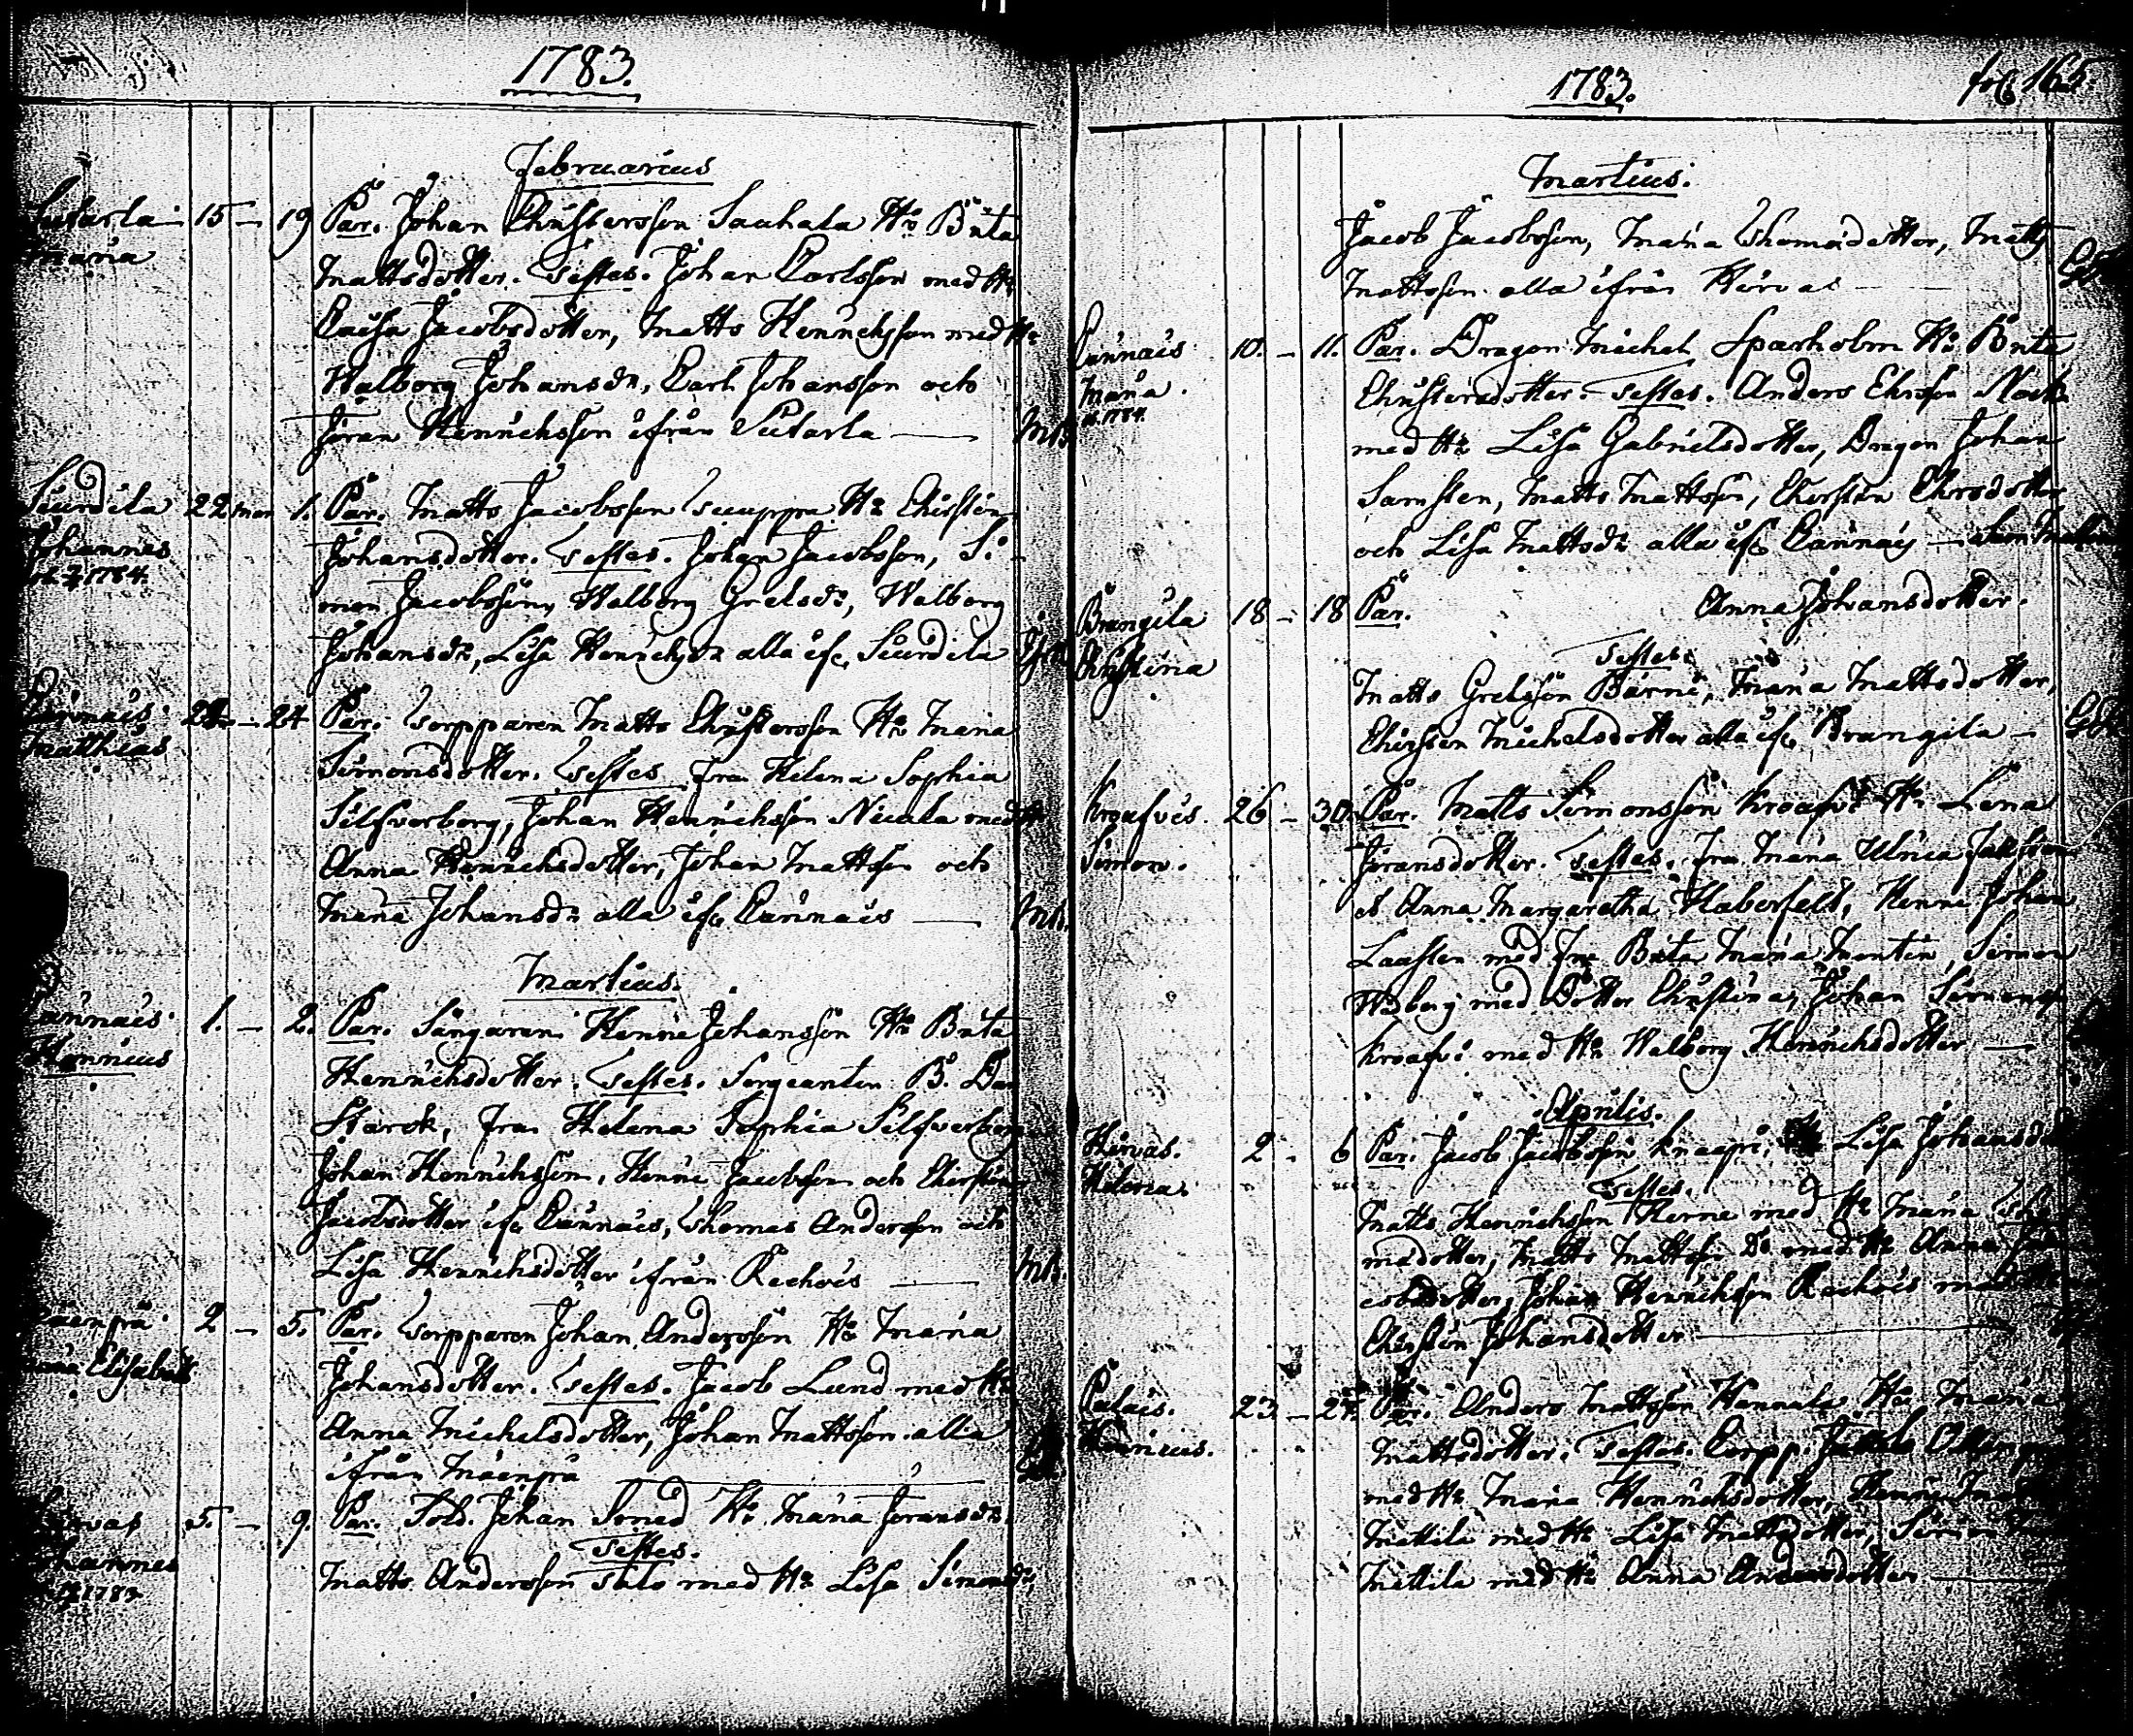 1783.
Februarius
Sutarla 15 — 19 Par. Johan Christersson Sauhala H:u Brita
Maria Mattsdotter. Testes. Johan Carlsson med H:u
Caisa Jacobsdotter, Matts Henrichsson med H:u
Walborg Johansd:r, Carl Johansson och
Jöran Henrichsson ifrån Sutarla —
Siurdila 22 mar 1. Par. Matts Jacobsson H:u Chirstin
Johannes Johansdotter. Testes. Johan Jacobsson, Si-
1784. mon Jacobsson, Walborg Grelsd:r, Walborg
Johansd:r, Lisa Henrichsd:r alla ifr. Siurdila
24 Par. Torpparen Matts Christersson H:u Maria
Matthias Simonsdotter. Testes fru Helena Sophia
Silfverberg, Johan Henrichsson Niuala med H:u
Anna Henrichsdotter, Johan Mattsson och
Maria Johansd:r alla ifr. Cannais —
Martius.
Cannais 1. — 2. Par. Sångaren Henric Johansson H:u Brita
Henricus Henrichsdotter. Testes. Sergeanten B.
Starck, fru Helena Sophia Silfverberg
Johan Henrichsson, Henric Jacobsson och Chirstin
Jacobsdotter ifr. Cannais, Thomas Andersson och
Lisa Henrichsdotter ifrån Rechois —
Mäenpä 2 — 5. Par. Torpparen Johan Andersson H:u Maria
Elisabeth Johansdotter. Testes. Jacob Lund med H:u
Anna Michelsdotter, Johan Mattsson alla
ifrån Mäenpä
5. — 9. Par. Sold. Johan Smed H:u Maria Joransd:r.
Johannes Testes.
1783 Matts Andersson med H:u Lisa Simonsd:r
1783. fol. 165
Martius.
Jacob Jacobsson, Maria Thomasdotter, Matts
Mattsson alla ifrån Hirvas —
Cannais 10. — 11. Par. Dragon Michel Sparholm H:u Brita
Maria. Christersdotter. Testes. Anders Ehrsson
1784. med H:u Lisa Gabrielsdotter, Dragon Johan
Samsten, Matts Mattsson, Chirstin Ehrsdotter
och Lisa Mattsd:r alla ifr. Cannais —
Brangila 18 — 18 Par. Anna Johansdotter.
Christina Testes.
Matts Grelsson Bärni, Maria Mattsdotter,
Chirstin Michelsdotter alla ifr. Brangila —
Kroafvis. 26 — 30. Par. Matts Simonsson Kroafvi H:u Lena
Simon. Jöransdotter. Testes. fru Maria Ulrica
et Anna Margaretha Haberfelt, Henric Johan
Laasten med fru Brita Maria Montin, Simon
med Dotter Christina, Johan Simonss.
Kroafvi med H:u Walborg Henrichsdotter —
Aprilis.
Hirvas. 2 - 6 Par. Jacob Jacobsson Knaapi, H:u Lisa Johansd:r
Helena. Testes.
Matts Henrichsson Herne med H:u Maria Tho-
madotter, Matts Mattsson D:o med H:u Anna Ja-
cobsdotter, Johan Henrichsson Rechois med
Chirstin Johansdotter —
Palais. 23 — 27. Par. Anders Mattsson Hannula H:u Maria
Henricus. Mattsdotter. Testes. Corpp.
med H:u Maria Henrichsdotter,
Mattila med H:u Lisa Mattsdotter, Simon
Mattila med H:u Anna Andersdotter —